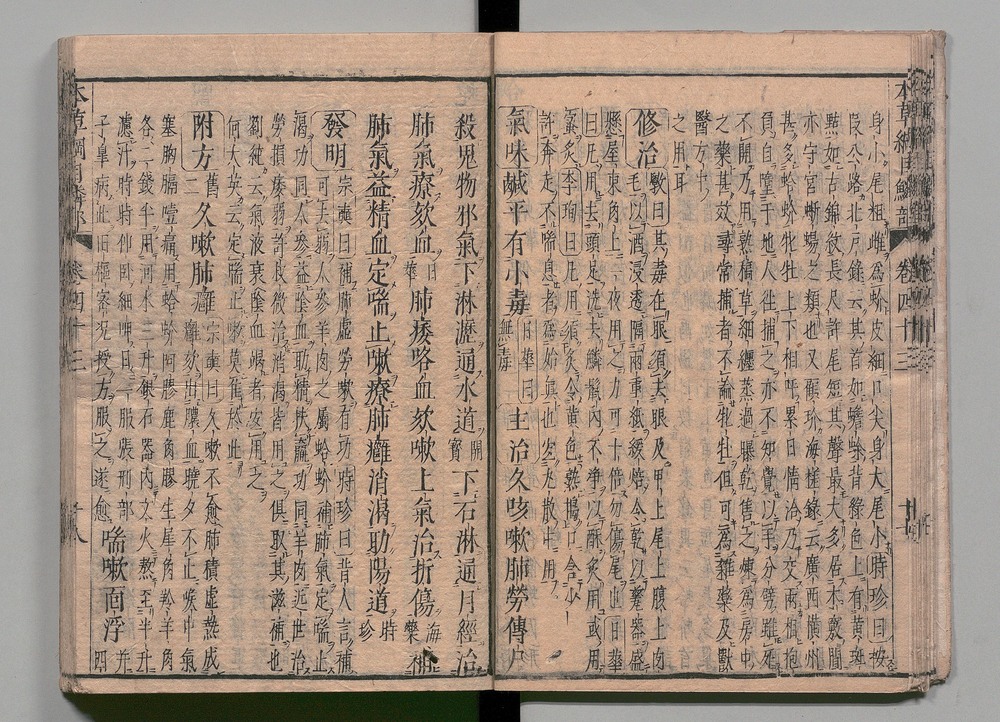 本草綱目鱗部 卷四十三
身小尾粗雌爲蚧皮細口尖身大尾小時珍曰按
段公路北戶錄云其首如蟾蜍背綠色上有黃斑
點如古錦紋長尺許尾短其聲最大多居木竅間
亦守宮蜥蜴之類也又顧玠海槎錄云廣西橫州
甚多蛤蚧牝牡上下相呼累日情洽乃交兩相抱
負自墮于地人往捕之亦不知覺以手分劈雖死
不開乃用熟稿草細纏蒸過曝乾售之煉爲房中
之藥甚效尋常捕者不論牝牡但可爲雜藥及獸
醫方中
之用耳
修治 斅曰其毒在眼須去眼及甲上尾上腹上肉
毛以酒浸透隔兩重紙緩焙令乾以瓷器盛
懸屋東角上一夜用之力可十倍勿傷尾也日華
曰凡用去頭足洗去鱗鬣內不淨以酥炙用或用
蜜炙李珣曰凡用須炙令黃色熟搗口含少
許奔走不喘息者爲始眞也宜丸散中用
氣味鹹平有小毒 日華曰無毒 主治久咳嗽肺勞傳尸
殺鬼物邪氣下淋瀝通水道 開寶 下石淋通月經治
肺氣療欬血 日華 肺痿咯血欬嗽上氣治折傷 海藥 補
肺氣益精血定喘止嗽療肺癰消渴助陽道 時珍
發明 宗奭曰補肺虛勞嗽有功時珍曰昔人言補
可去弱人參羊肉之屬蛤蚧補肺氣定喘止
渴功同人參益陰血助精扶羸功同羊肉近世治
勞損痿弱許叔微治消渴皆用之俱取其滋補也
劉純云氣液衰陰血竭者宜用之
何大英云定喘止嗽莫佳於此
附方 舊二 久嗽肺癰 宗奭曰久嗽不愈肺積虛熱成
癰欬出膿血曉夕不止喉中氣
塞胸膈噎痛用蛤蚧阿膠鹿角膠生犀角羚羊角
各二錢半用河水三升銀石器內文火熬至半升
濾汁時時仰臥細呷日一服張刑部
子皐病此田樞密況授方服之遂愈 喘嗽面浮 四
本草綱目鱗部 卷四十三